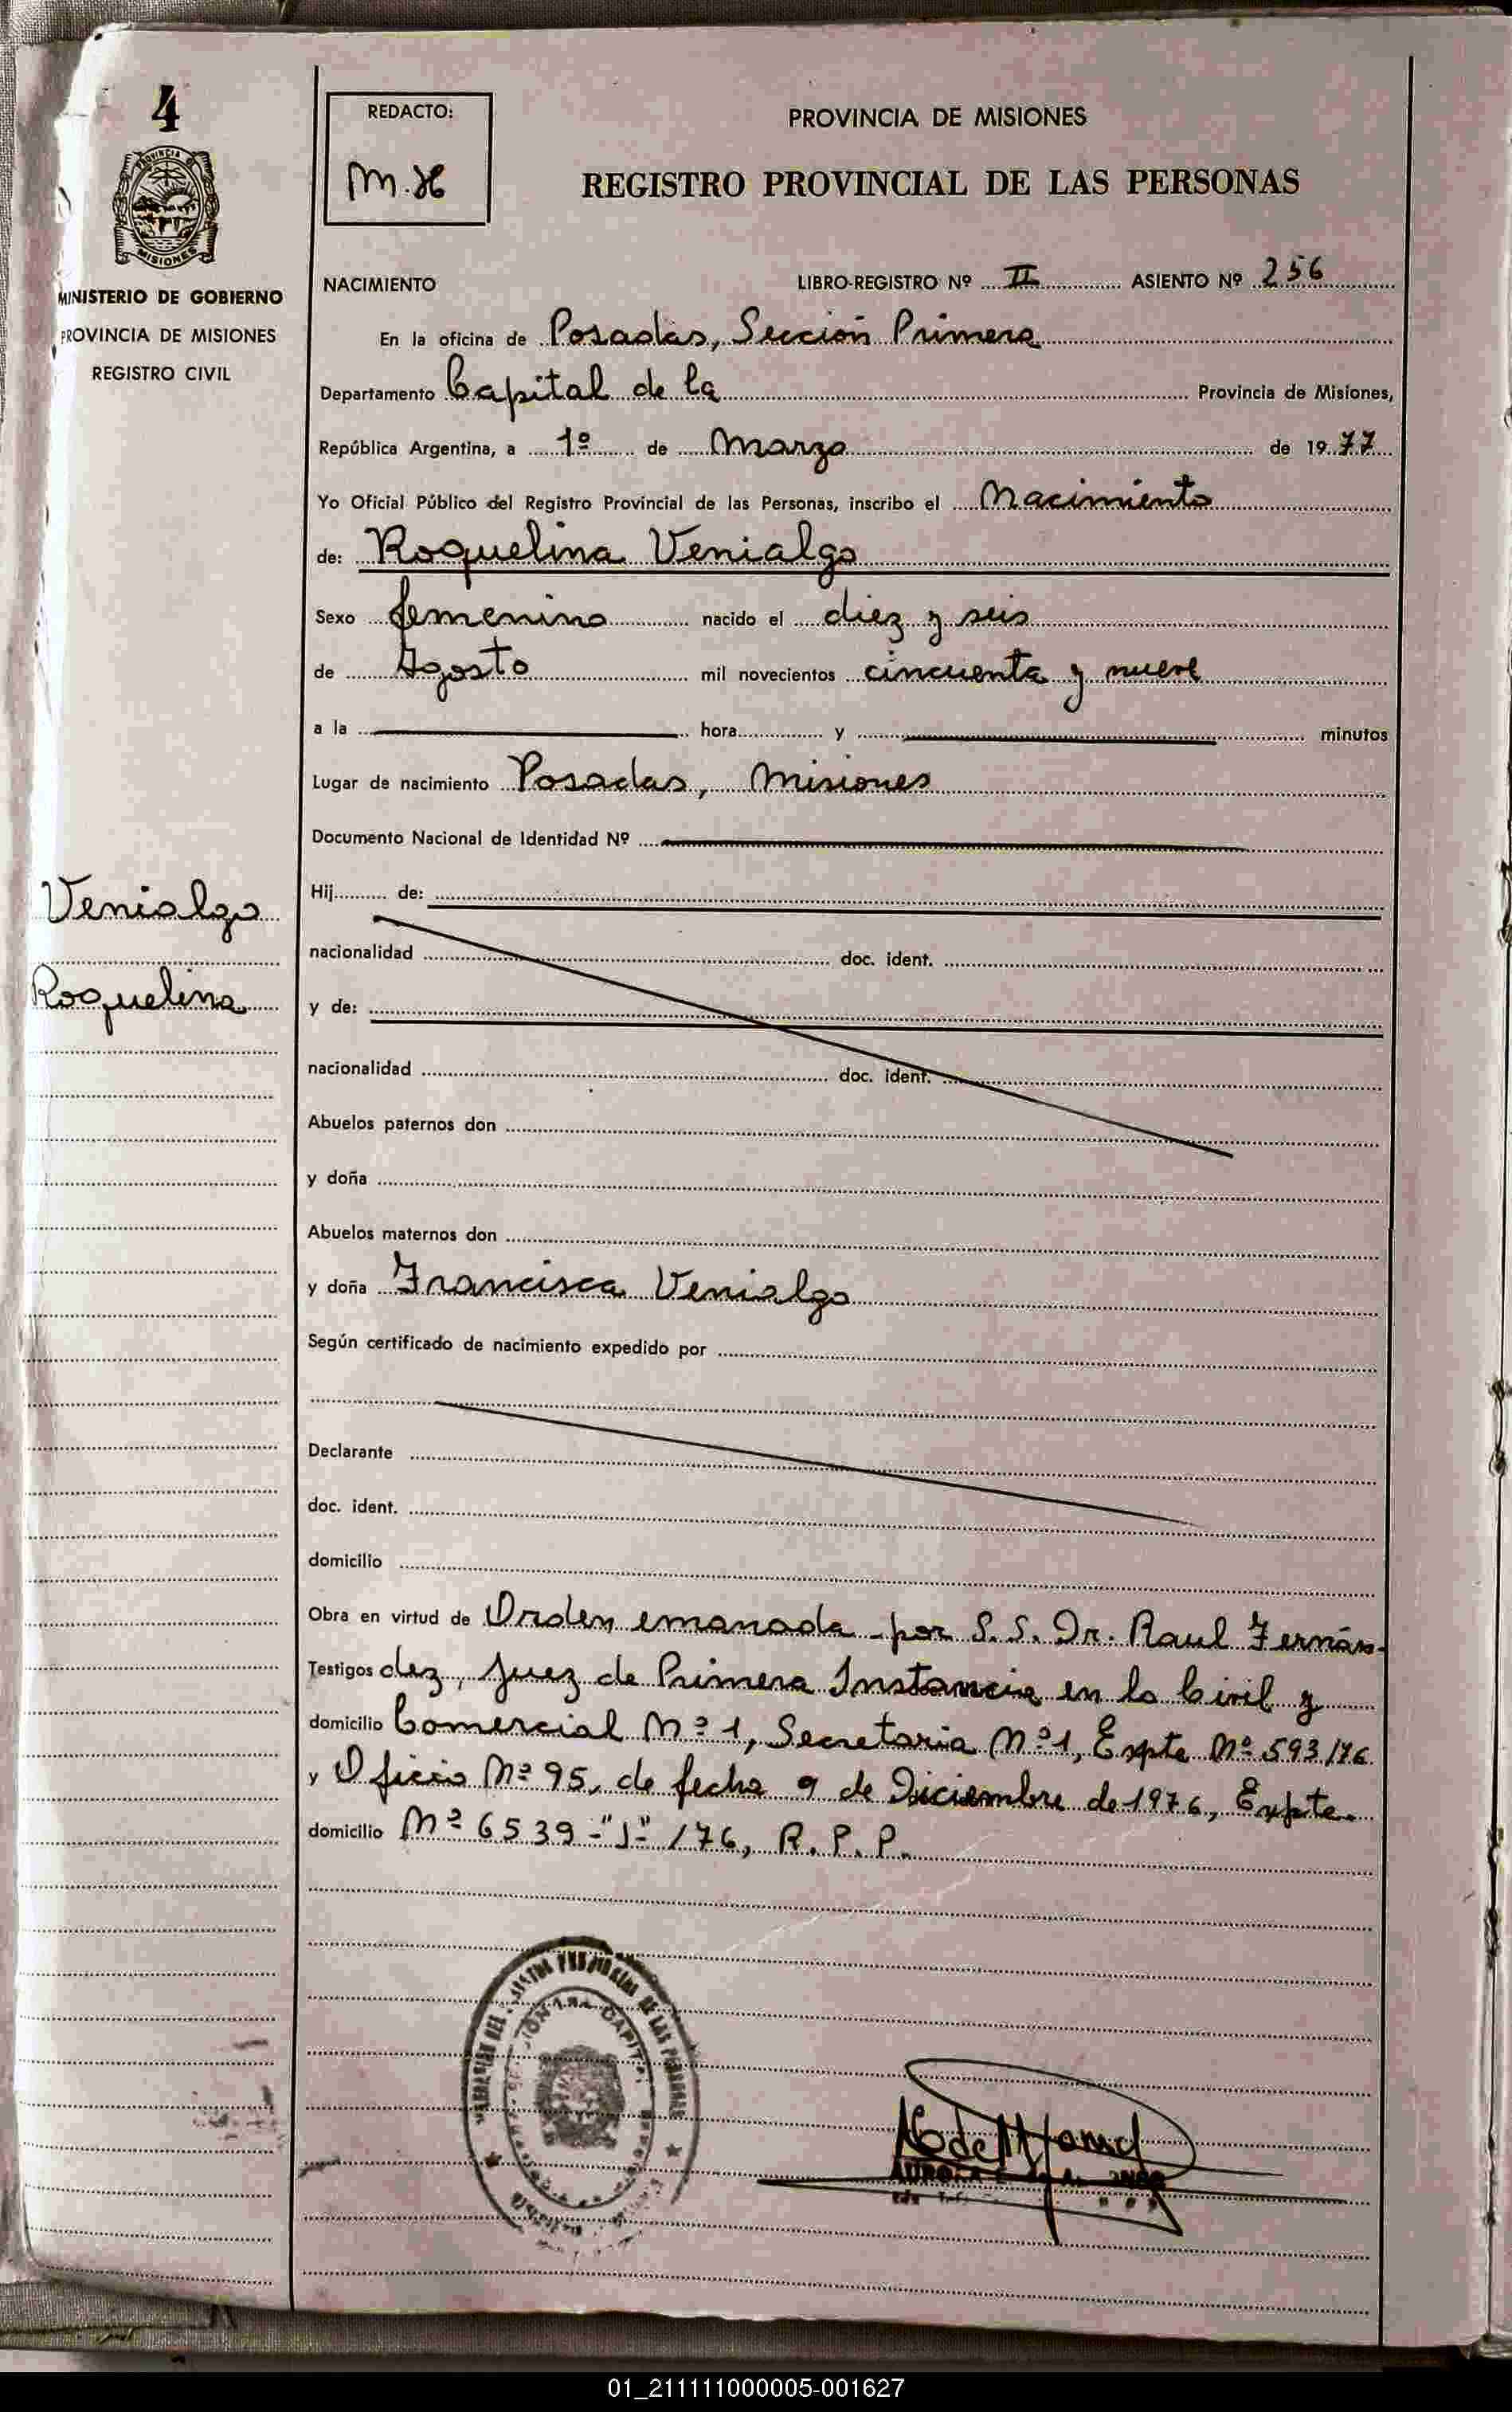 4
REDACTO:
M.H
PROVINCIA DE MISIONES
REGISTRO PROVINCIAL DE LAS PERSONAS
PROVINCIA DE
MISIONES
MINISTERIO DE GOBIERNO
PROVINCIA DE MISIONES
REGISTRO CIVIL
NACIMIENTO LIBRO-REGISTRO Nº II ASIENTO Nº 256
En la oficina de Posadas, Sección Primera
Departamento Capital de la Provincia de Misiones,
República Argentina, a 1º de Marzo de 1977
Yo Oficial Público del Registro Provincial de las Personas, inscribo el Nacimiento
de: Roquelina Venialgo
Sexo femenino nacido el diez y seis
de Agosto mil novecientos cincuenta y nueve
a la hora y minutos
Lugar de nacimiento Posadas, Misiones
Documento Nacional de Identidad Nº
Venialgo
Roquelina
Hij de:
nacionalidad doc. ident.
y de:
nacionalidad doc. ident.
Abuelos paternos don
y doña
Abuelos maternos don
y doña Francisca Venialgo
Según certificado de nacimiento expedido por
Declarante
doc. ident.
domicilio
Obra en virtud de Orden emanada por S.S. Dr. Raul Fernán-
Testigos dez, Juez de Primera Instancia en lo Civil y
domicilio Comercial Nº 1, Secretaria Nº 1, Expte Nº 593/76
y Oficio Nº 95, de fecha 9 de Diciembre de 1976, Expte.
domicilio Nº 6539-"J"-/76, R.P.P.
DE LAS PERSONAS
CAPITAL
AURORA
01_211111000005-001627